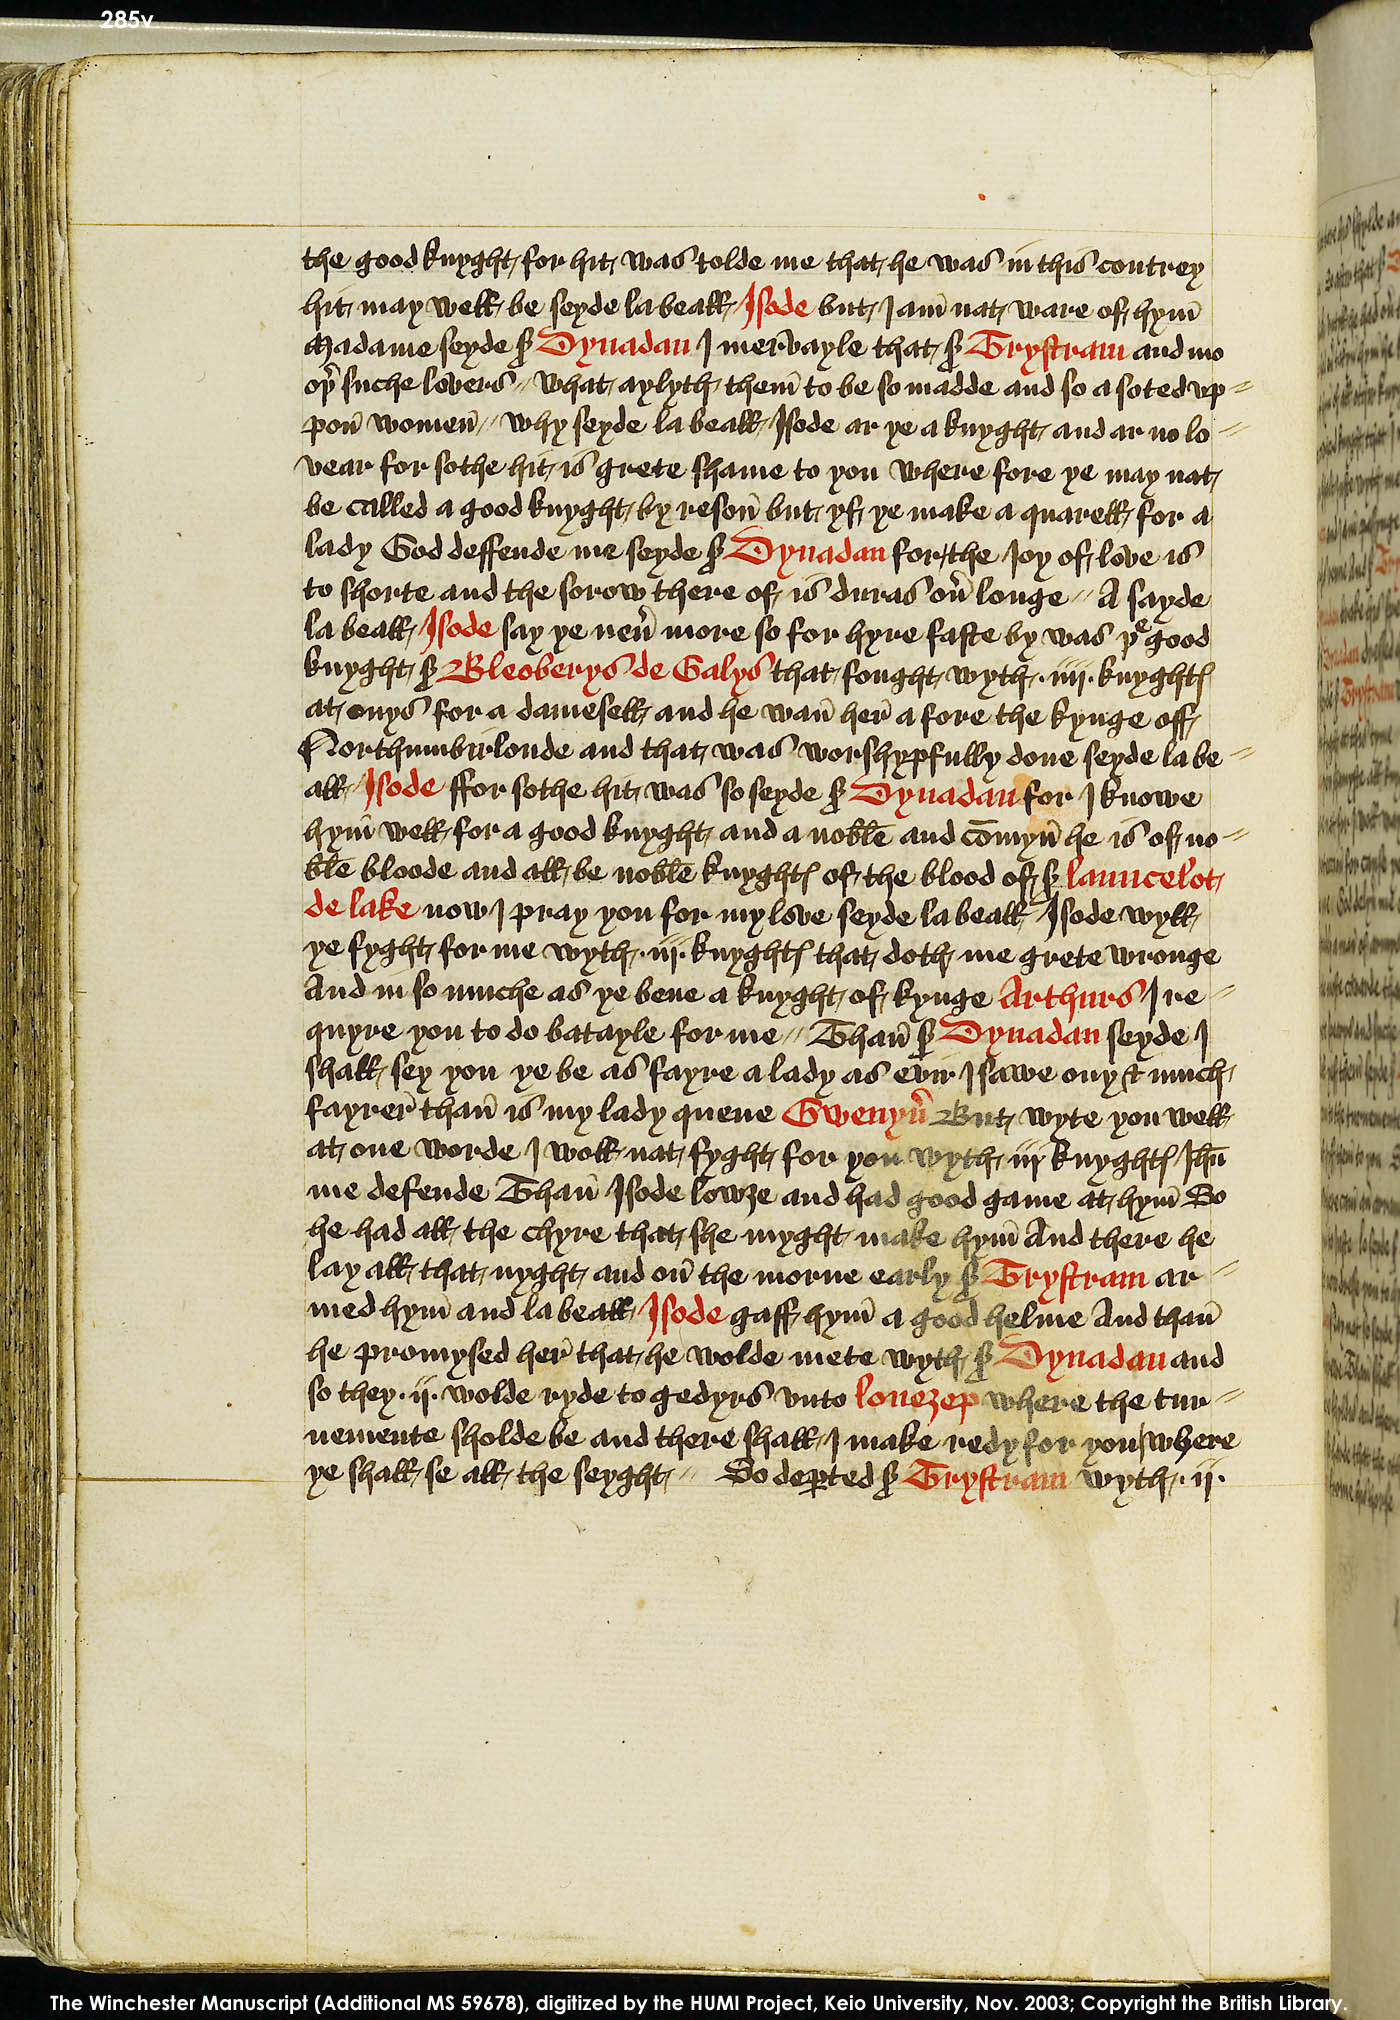 285v
the good knyght for hit was tolde me that he was in this contrey
hit may well be seyde la beall Isode but I am̄ nat ware of hym̄
Madame seyde sˀ Dynadan I mervayle that sˀ Trystram and mo
oþˀ suche lovers // what aylyth them̄ to be so madde and so a soted vp=
pon̄ women̄ // why seyde la beall Isode ar ye a knyght and ar no lo=
vear for sothe hit is grete shame to you where fore ye may nat
be called a good knyght by reson̄ but yf ye make a quarell for a
lady God deffende me seyde sˀ Dynadan for the Ioy of love is
to shorte and the sorow there of is duras oūˀ longe // A sayde
la beall Isode say ye neūˀ more so for hyre faste by was þᵉ good
knyght sˀ Bleoberys de Galys that fought wyth ·iiij· knyghtꝭ
at onys for a damesell and he wan̄ her̄ a fore the kynge off
Northumbirlonde and that was worshypfully done seyde la be=
all Isode ffor sothe hit was so seyde sˀ Dynadan for I knowe
hym̄ well for a good knyght and a noble and com̄yn̄ he is of no=
ble bloode and all be noble knyghtꝭ of the blood of sˀ launcelot
de lake now I pray you for my love seyde la beall Isode wyll
ye fyght for me wyth ·iij· knyghtꝭ that doth me grete wronge
And in so muche as ye bene a knyght of kynge Arthurs I re=
quyre you to do batayle for me // Than̄ sˀ Dynadan seyde I
shall sey you ye be as fayre a lady as evir I sawe ony & much
fayrer̄ than̄ is my lady quene Gwenyūˀ But wyte you well
at one worde I woll nat fyght for you wyth iij knyghtꝭ Jhū
me defende Than̄ Isode lowȝe and had good game at hym̄ So
he had all the chyre that she myght make hym̄ And there he
lay all that nyght and on̄ the morne early sˀ Trystram ar=
med hym̄ and la beall Isode gaff hym̄ a good helme And than̄
he promysed her̄ that he wolde mete wyth sˀ Dynadan and
so they ·ij· wolde ryde to gedyrs vnto loneȝep where the tur=
nemente sholde be and there shall I make redy for you where
ye shall se all the seyght // So deꝑted sˀ Trystram wyth ·ij·
The Winchester Manuscript (Additional MS 59678), digitized by the HUMI Project, Keio University, Nov. 2003; Copyright the British Library.